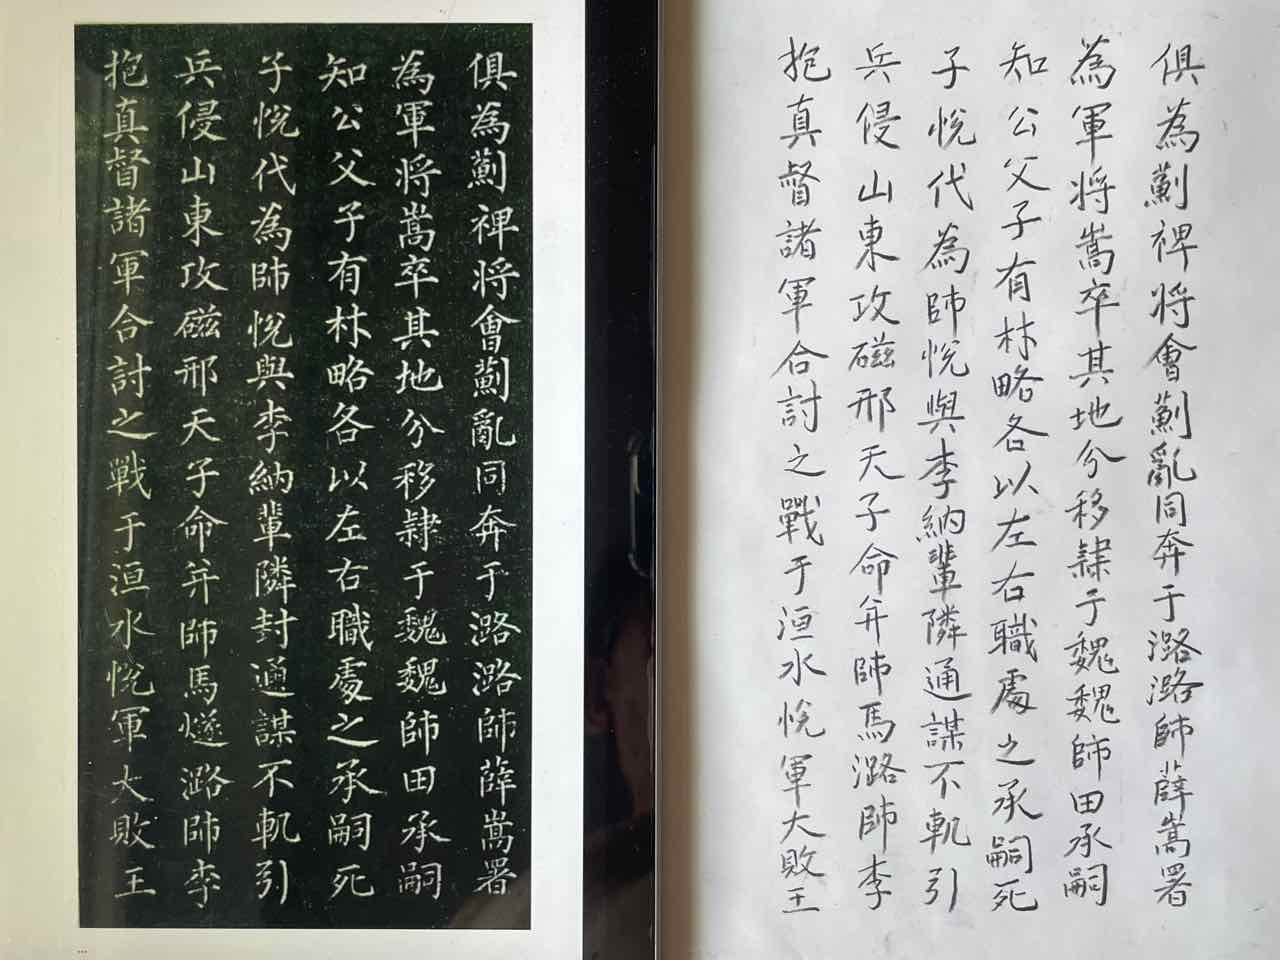 俱為薊裨將會薊亂同奔于潞潞帥薛嵩署
為軍將嵩卒其地分移隸于魏魏帥田承嗣
知公父子有材略各以左右職處之承嗣死
子悅代為帥悅與李納輩隣封通謀不軌引
兵侵山東攻磁邢天子命并帥馬燧潞帥李
抱真督諸軍合討之戰于洹水悅軍大敗王
俱為薊裨將會薊亂同奔于潞潞帥薛嵩署
為軍將嵩卒其地分移隸于魏魏帥田承嗣
知公父子有材略各以左右職處之承嗣死
子悅代為帥悅與李納輩隣通謀不軌引
兵侵山東攻磁邢天子命并帥馬潞帥李
抱真督諸軍合討之戰于洹水悅軍大敗王